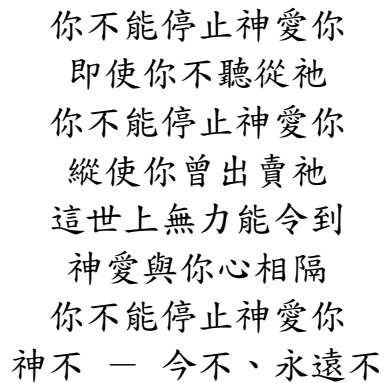 你不能停止神愛你
即使你不聽從祂
你不能停止神愛你
縱使你曾出賣祂
這世上無力能令到
神愛與你心相隔
你不能停止神愛你
神不 － 今不、永遠不